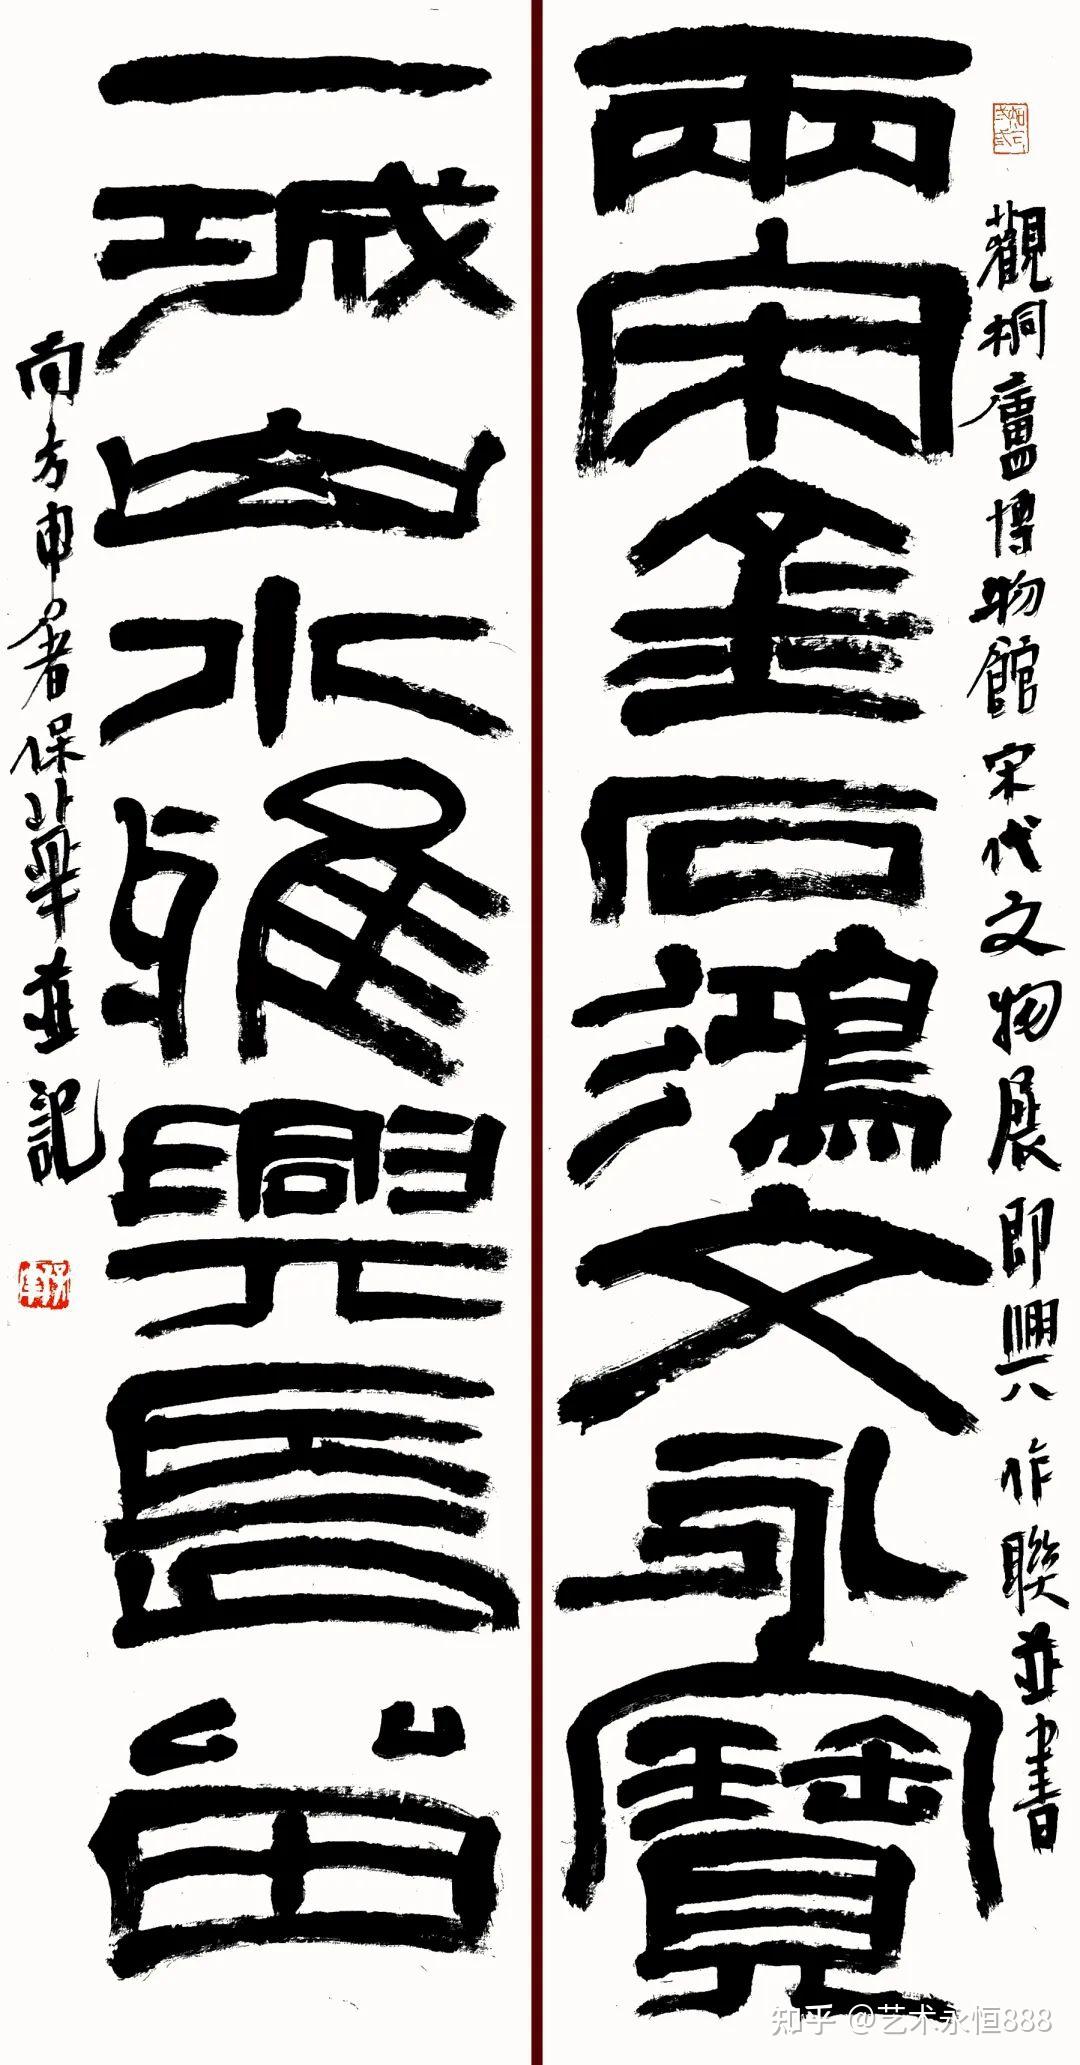 觀桐廬博物館宋代文物展即興作聯並書
兩宋金石鴻文永寶
一城山水雅興長留
方申保華並記
知乎 @艺术永恒888